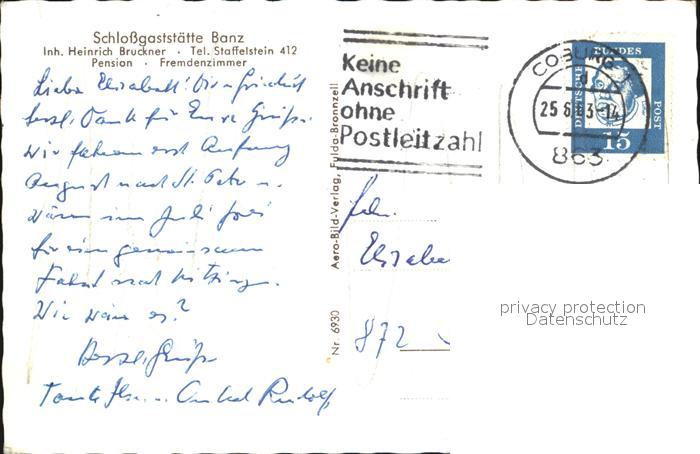 Schloßgaststätte Banz
Inh. Heinrich Bruckner · Tel. Staffelstein 412
Pension · Fremdenzimmer
Liebe Elisabeth!
herzl. Dank für Eure Grüße.
wir fahren erst Anfang
August nach St. Peter u.
wären im Juli frei
für eine gemeinsame
Fahrt nach Kitzingen.
Wie wäre es?
Herzl. Grüße
Tante u. Onkel Rudolf
Aero-Bild-Verlag, Fulda-Bronnzell
Nr. 6930
Keine
Anschrift
ohne
Postleitzahl
COBURG
d
25.6.63-14
863
DEUTSCHE
BUNDES
POST
15
Frln.
Elisabe
872
privacy protection
Datenschutz